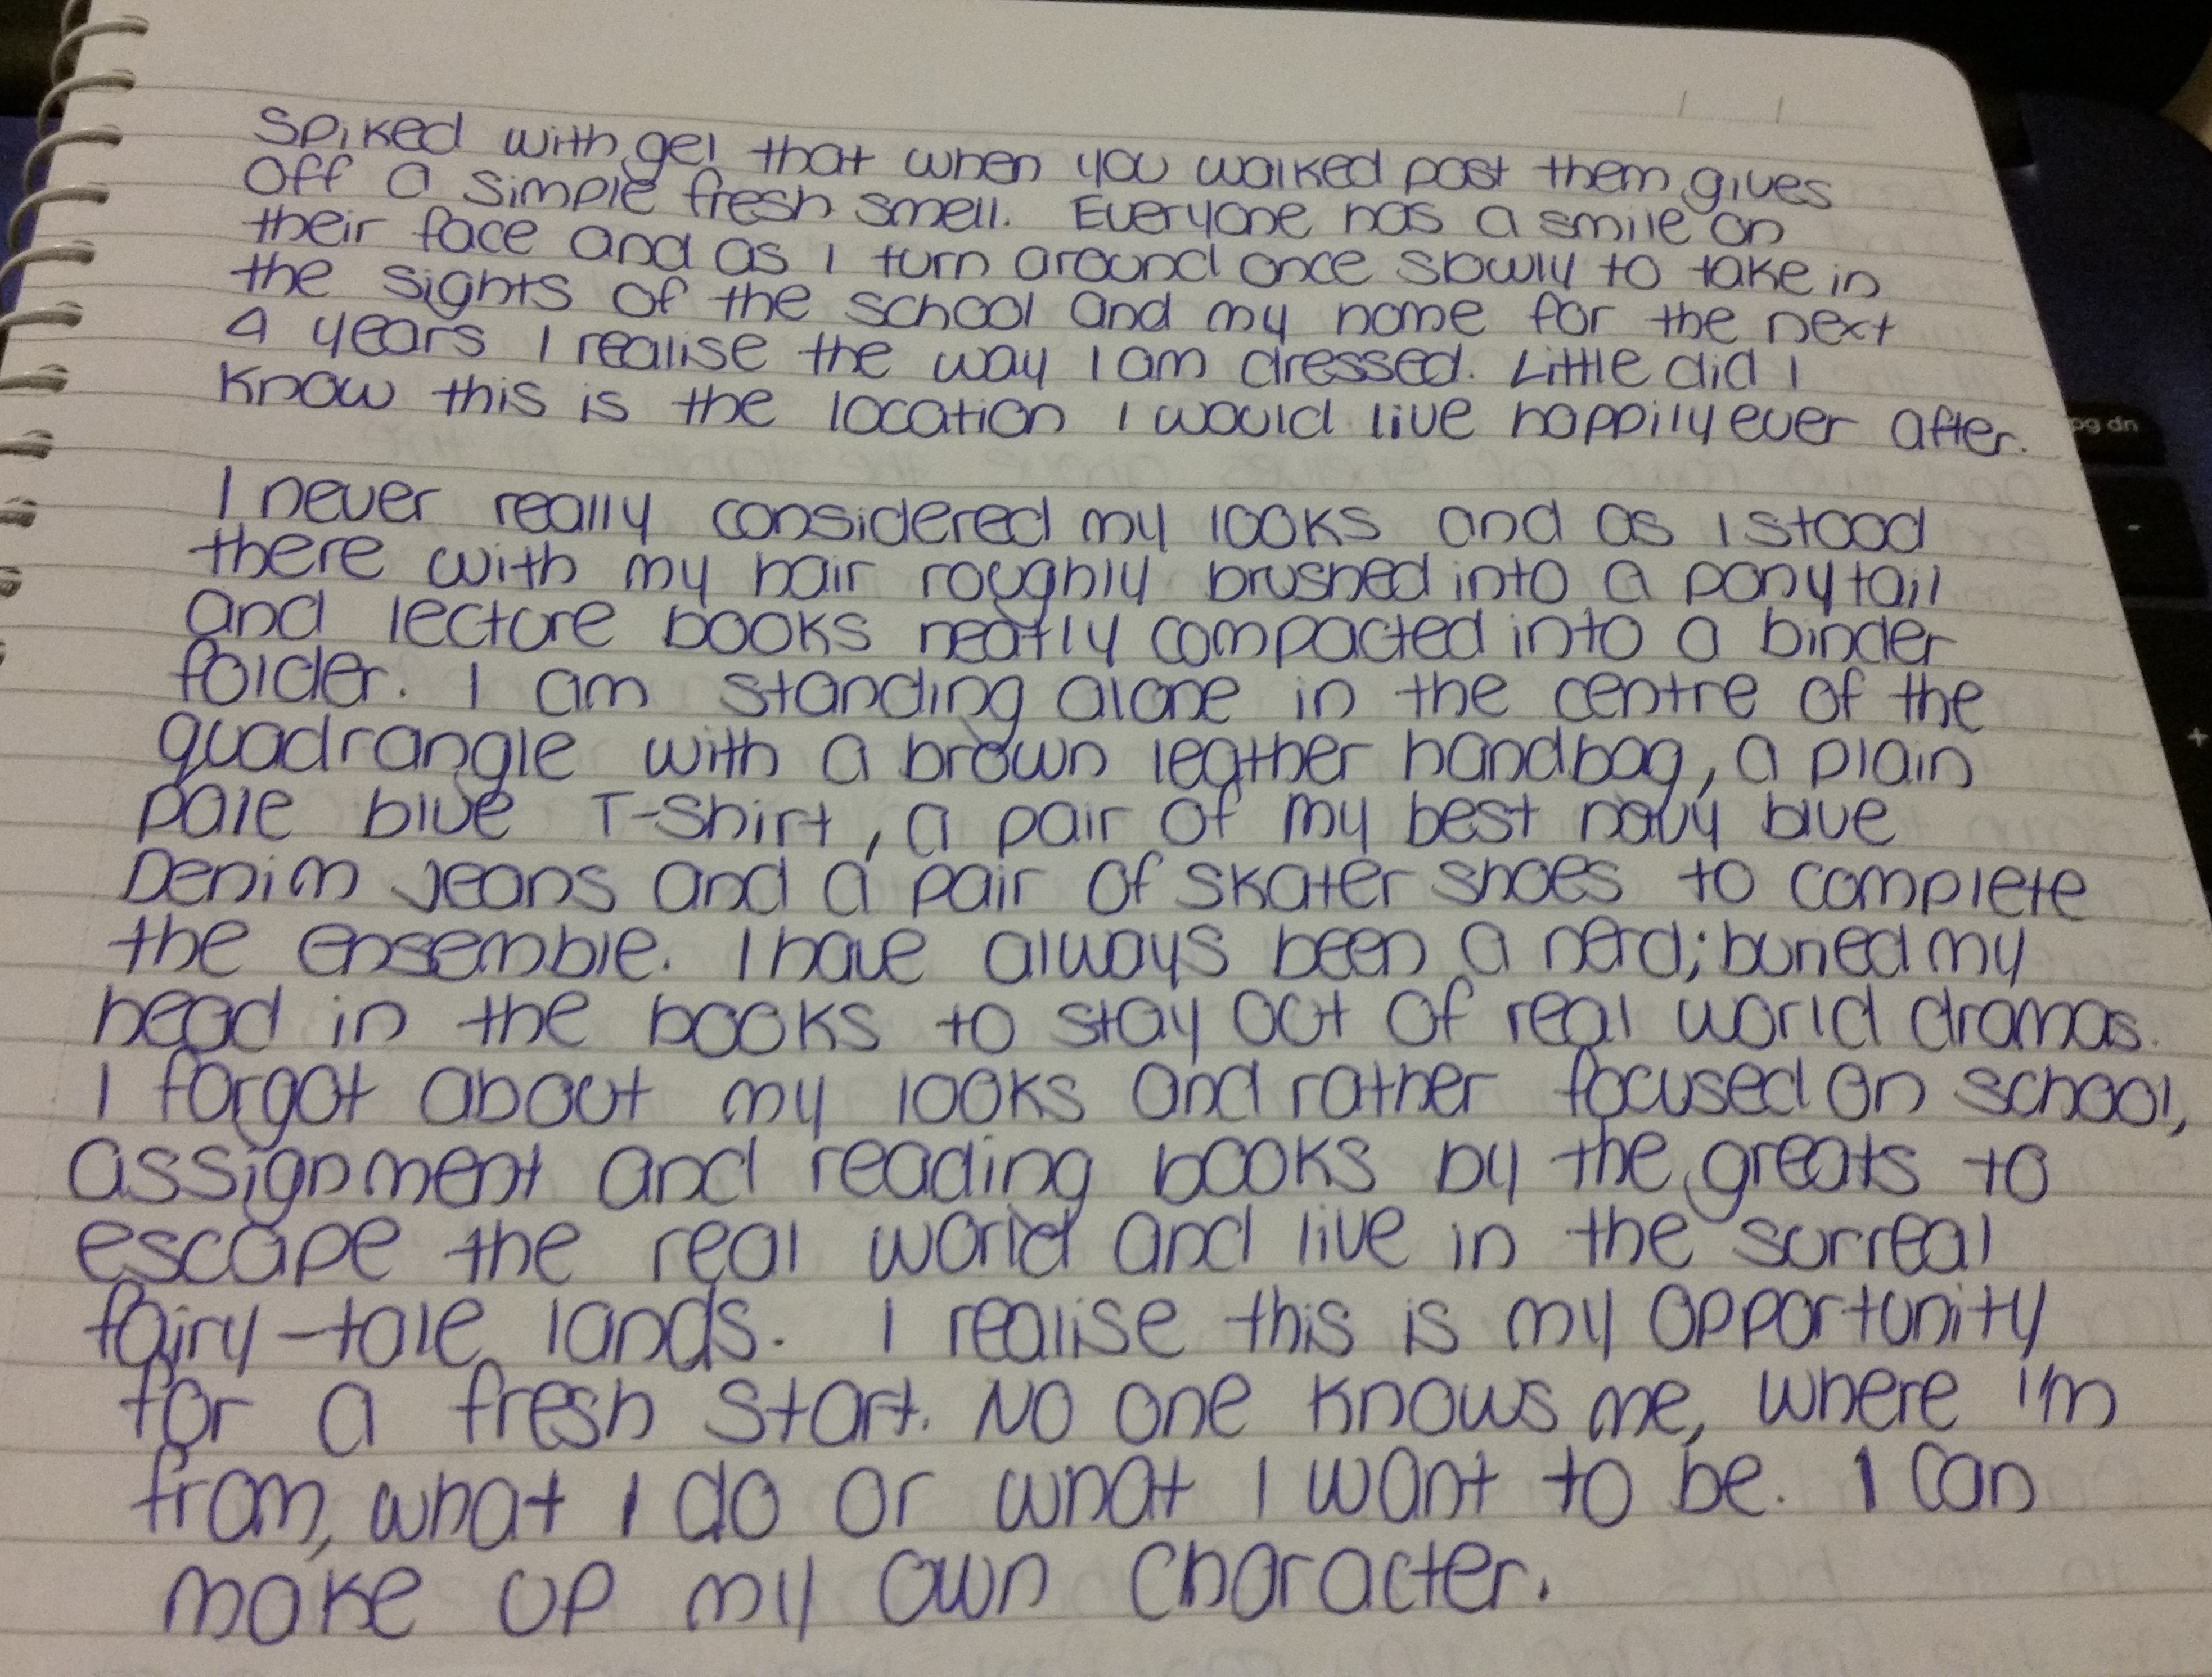 Spiked with gel that when you walked past them gives
off a simple fresh smell. Everyone has a smile on
their face and as I turn around once slowly to take in
the sights of the school and my home for the next
4 years I realise the way I am dressed. Little did I
know this is the location I would live happily ever after.
I never really considered my looks and as I stood
there with my hair roughly brushed into a ponytail
and lecture books neatly compacted into a binder
folder. I am standing alone in the centre of the
quadrangle with a brown leather handbag, a plain
pale blue T-Shirt, a pair of my best navy blue
Denim Jeans and a pair of skater shoes to complete
the ensemble. I have always been a nerd; buried my
head in the books to stay out of real world dramas.
I forgot about my looks and rather focused on school,
assignment and reading books by the greats to
escape the real world and live in the surreal
fairy-tale lands. I realise this is my opportunity
for a fresh start. No one knows me, where I'm
from, what I do or what I want to be. I can
make up my own character.
pg dn
-
+